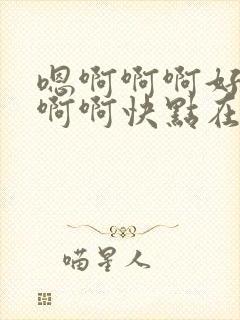 嗯啊啊啊好
啊啊快點在
喵星人